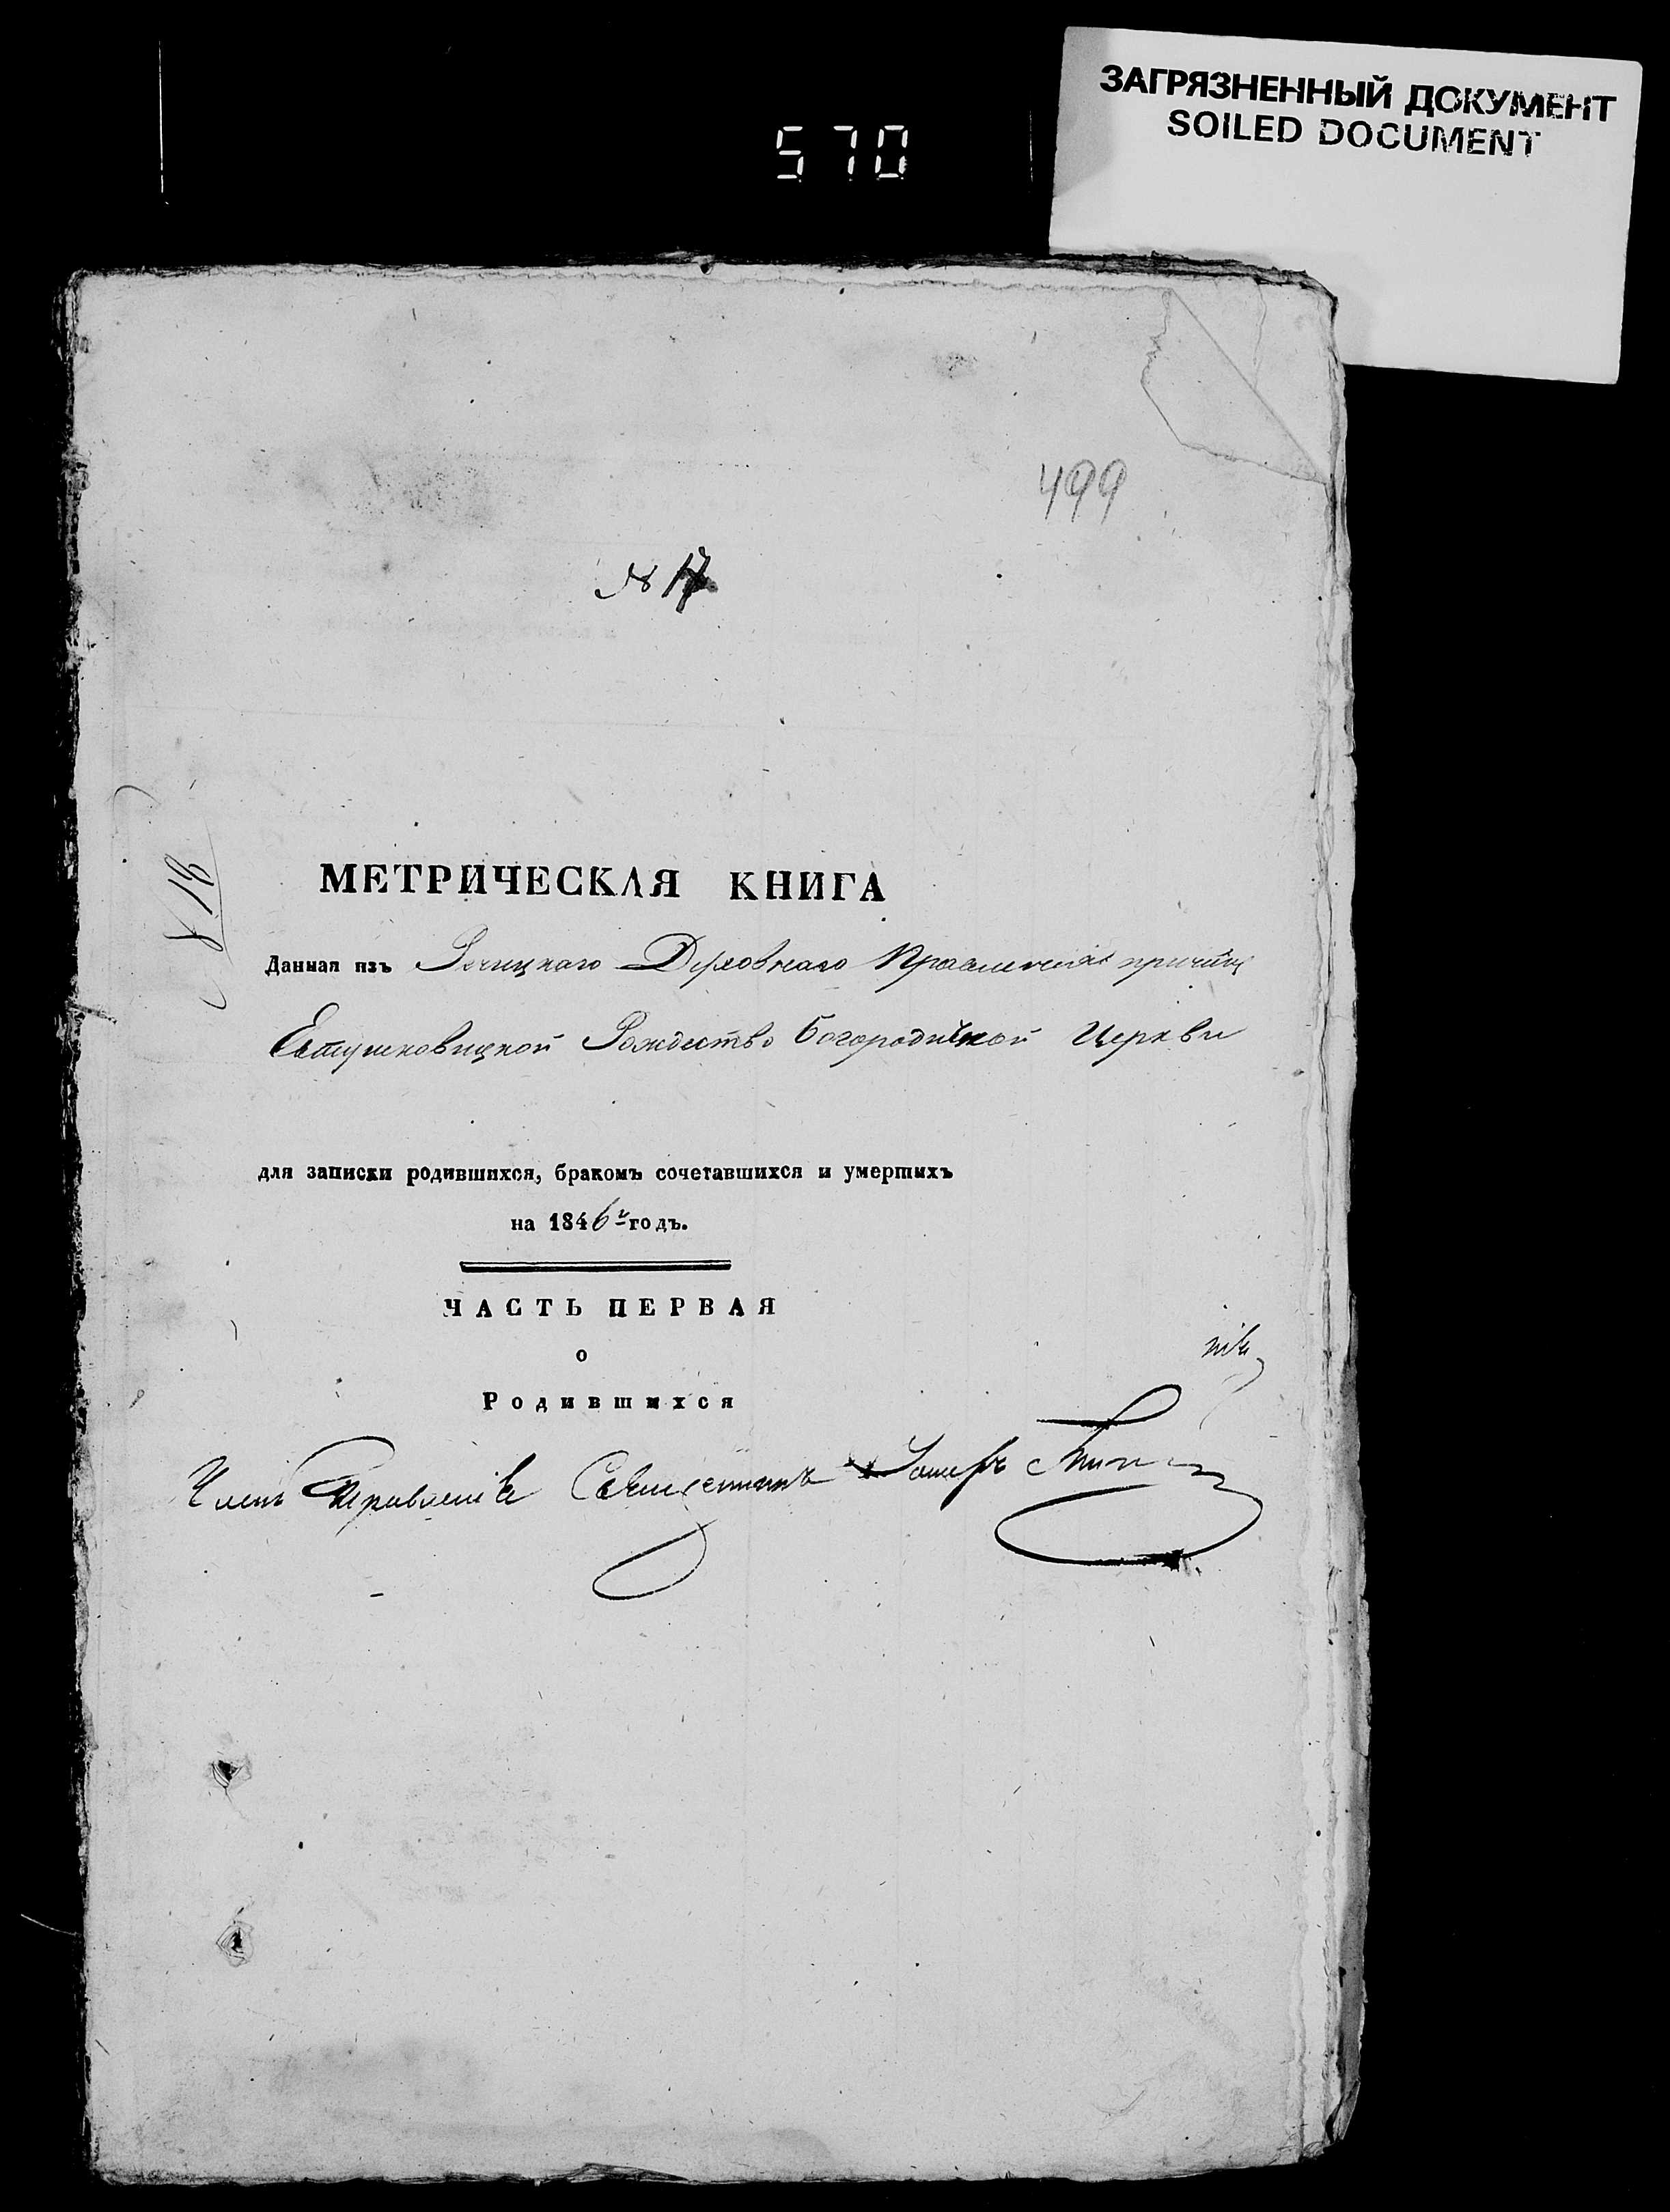 ЗАГРЯЗНЕННЫЙ ДОКУМЕНТ
SOILED DOCUMENT
570
499
№ 17
МЕТРИЧЕСКАЯ КНИГА
Данная изъ Речицкаго Духовнаго Правленія причту
Рождество Богородичной Церкви
для записки родившихся, бракомъ сочетавшихся и умершихъ
на 1846 годъ.
ЧАСТЬ ПЕРВАЯ
о
Родившихся
Членъ Правленія Священникъ